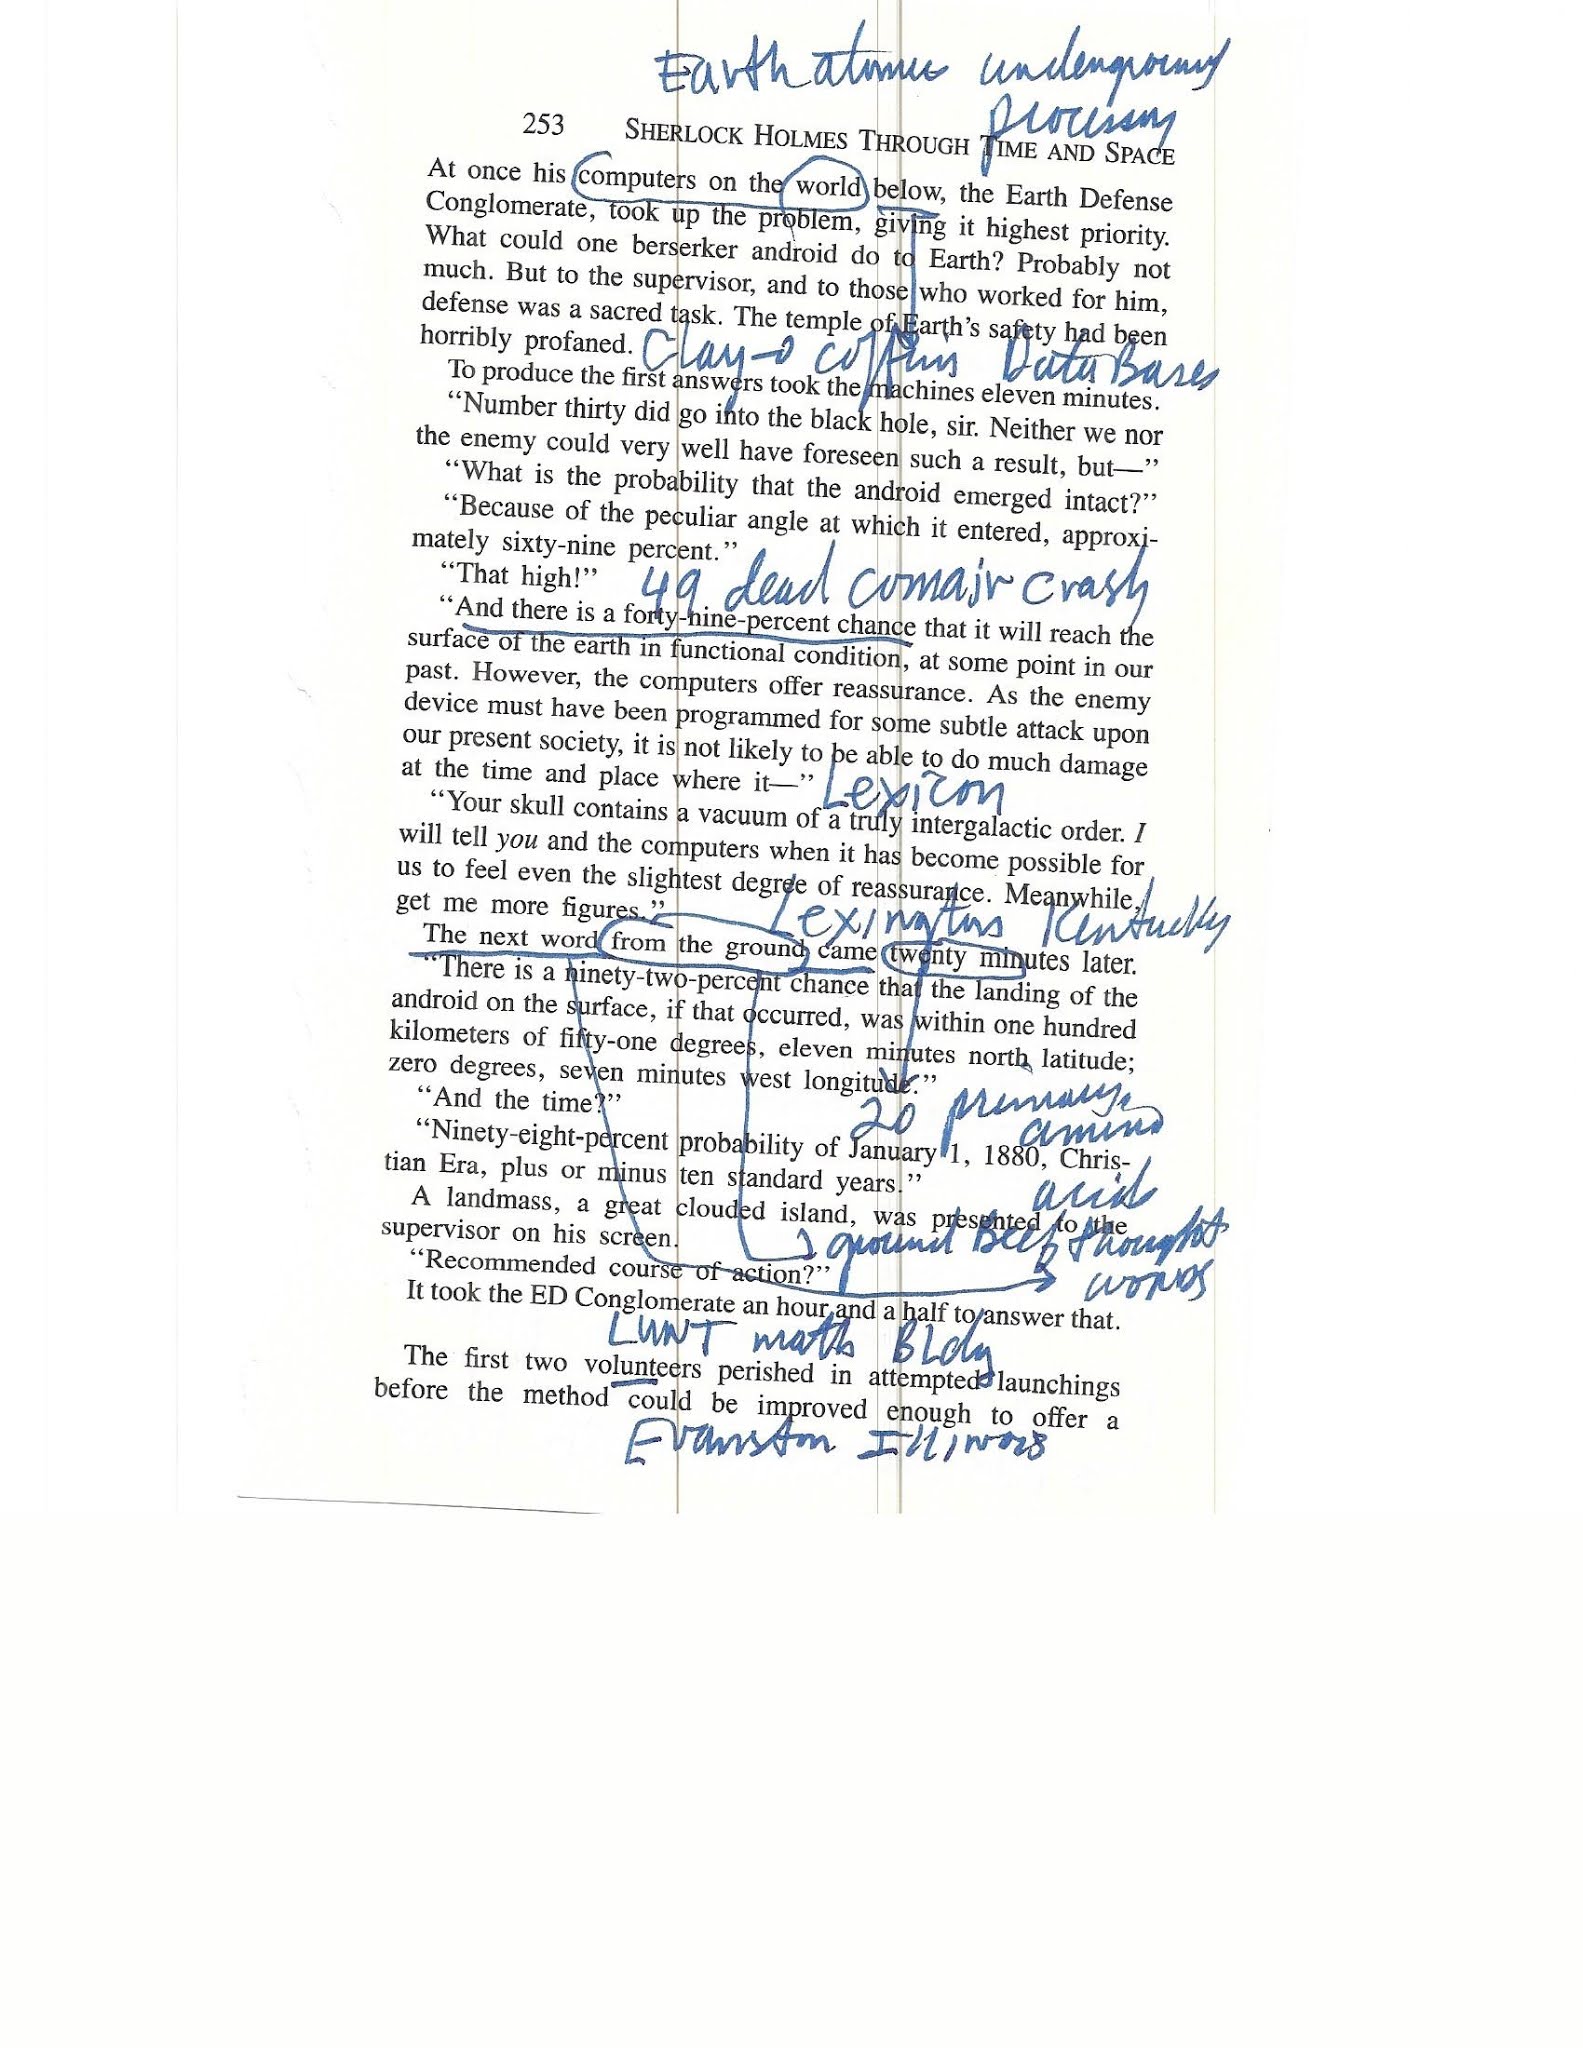 Earth atomic underground
processing
253 SHERLOCK HOLMES THROUGH TIME AND SPACE
At once his computers on the world below, the Earth Defense
Conglomerate, took up the problem, giving it highest priority.
What could one berserker android do to Earth? Probably not
much. But to the supervisor, and to those who worked for him,
defense was a sacred task. The temple of Earth's safety had been
horribly profaned.
Clay-o coffins Data Bases
To produce the first answers took the machines eleven minutes.
“Number thirty did go into the black hole, sir. Neither we nor
the enemy could very well have foreseen such a result, but—”
“What is the probability that the android emerged intact?”
“Because of the peculiar angle at which it entered, approxi-
mately sixty-nine percent.”
“That high!”
49 dead comair crash
“And there is a forty-nine-percent chance that it will reach the
surface of the earth in functional condition, at some point in our
past. However, the computers offer reassurance. As the enemy
device must have been programmed for some subtle attack upon
our present society, it is not likely to be able to do much damage
at the time and place where it—”
Lexicon
“Your skull contains a vacuum of a truly intergalactic order. I
will tell you and the computers when it has become possible for
us to feel even the slightest degree of reassurance. Meanwhile,
get me more figures.”
Lexington Kentucky
The next word from the ground came twenty minutes later.
“There is a ninety-two-percent chance that the landing of the
android on the surface, if that occurred, was within one hundred
kilometers of fifty-one degrees, eleven minutes north latitude;
zero degrees, seven minutes west longitude.”
“And the time?”
20 primary
amino
“Ninety-eight-percent probability of January 1, 1880, Chris-
tian Era, plus or minus ten standard years.”
acids
A landmass, a great clouded island, was presented to the
supervisor on his screen.
ground Beef thought
words
“Recommended course of action?”
It took the ED Conglomerate an hour and a half to answer that.
LUNT math Bldg
The first two volunteers perished in attempted launchings
before the method could be improved enough to offer a
Evanston Illinois